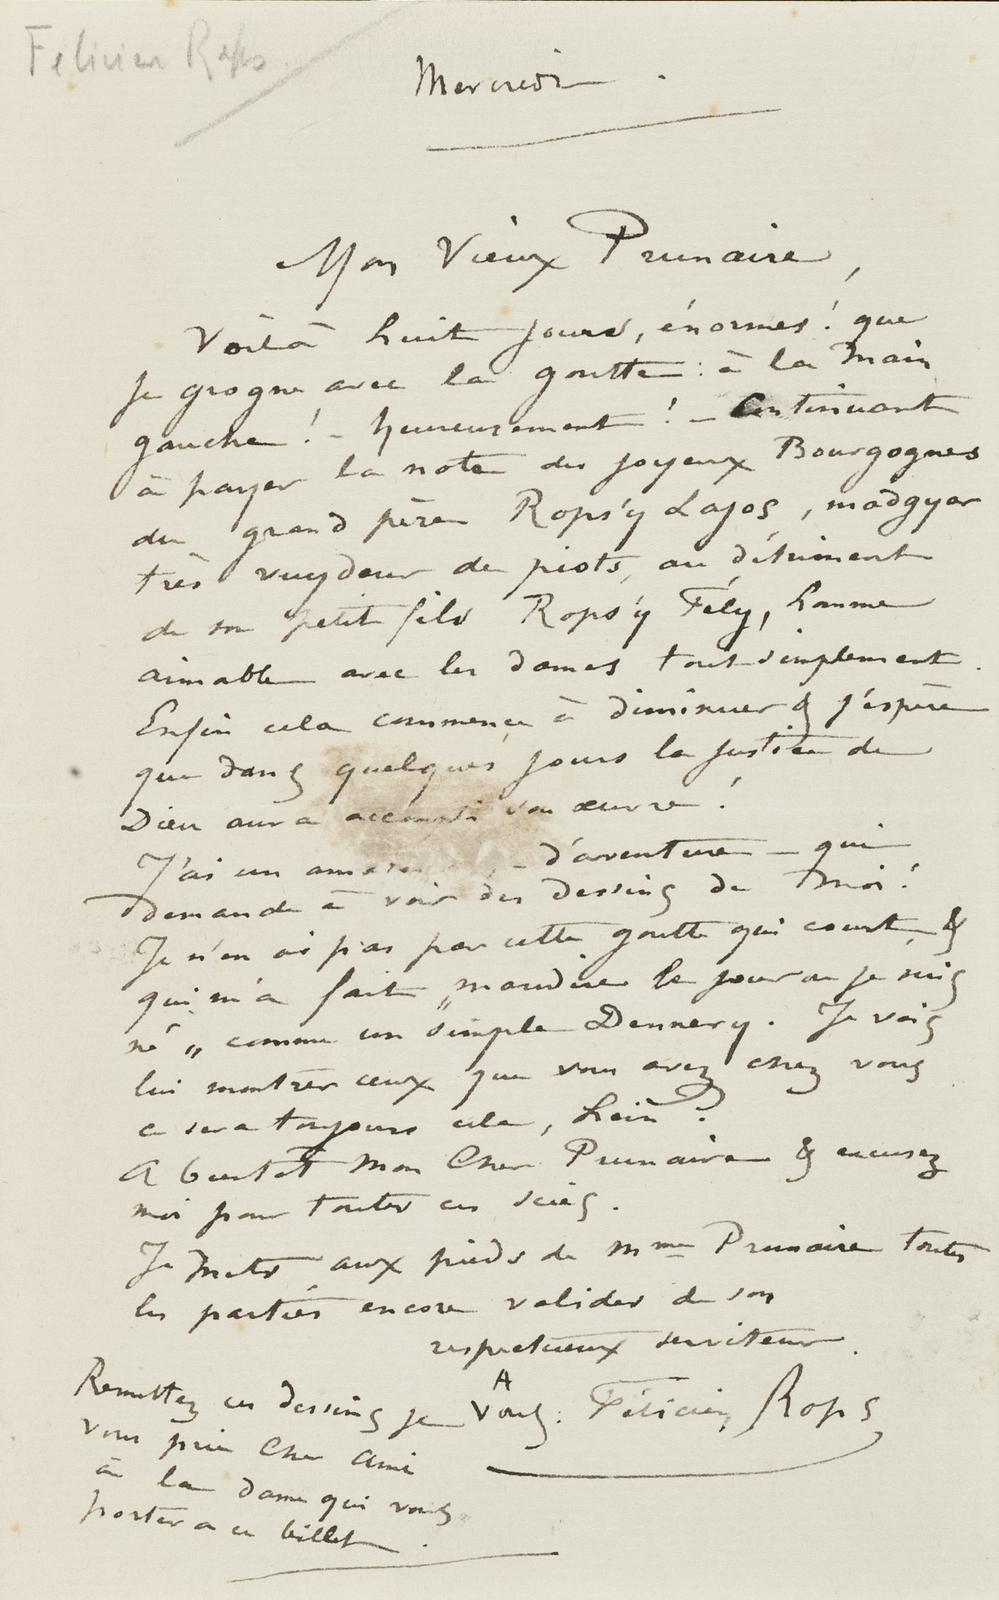 Félicien Rops
Mercredi
Mon Vieux Prunaire,
Voilà huit jours, énormes! que
je grogne avec la goutte: à la main
gauche! - heureusement! - Continuant
à payer la note des joyeux Bourgognes
du grand père Rops'y Lajos, madgyar
très vuydeur de piots, au détriment
de son petit fils Rops'y Fély, homme
aimable avec les dames tout simplement.
Enfin cela commence à diminuer & j'espère
que dans quelques jours la justice de
Dieu aura accompli son œuvre!
J'ai un amateur - d'aventure - qui
demande à voir des dessins de moi!
Je n'en ai pas par cette goutte qui court, &
qui m'a fait „maudire le jour où je suis
né „ comme un simple Dennery. Je vais
lui montrer ceux que vous avez chez vous
ce sera toujours cela, hein?
A bientôt mon Cher Prunaire & excusez
moi pour toutes ces scies.
Je mets aux pieds de Mme Prunaire toutes
les parties encore valides de son
respectueux serviteur.
A Vous. Félicien Rops
Remettez ces dessins je
vous prie Cher Ami
à la dame qui vous
portera ce billet.